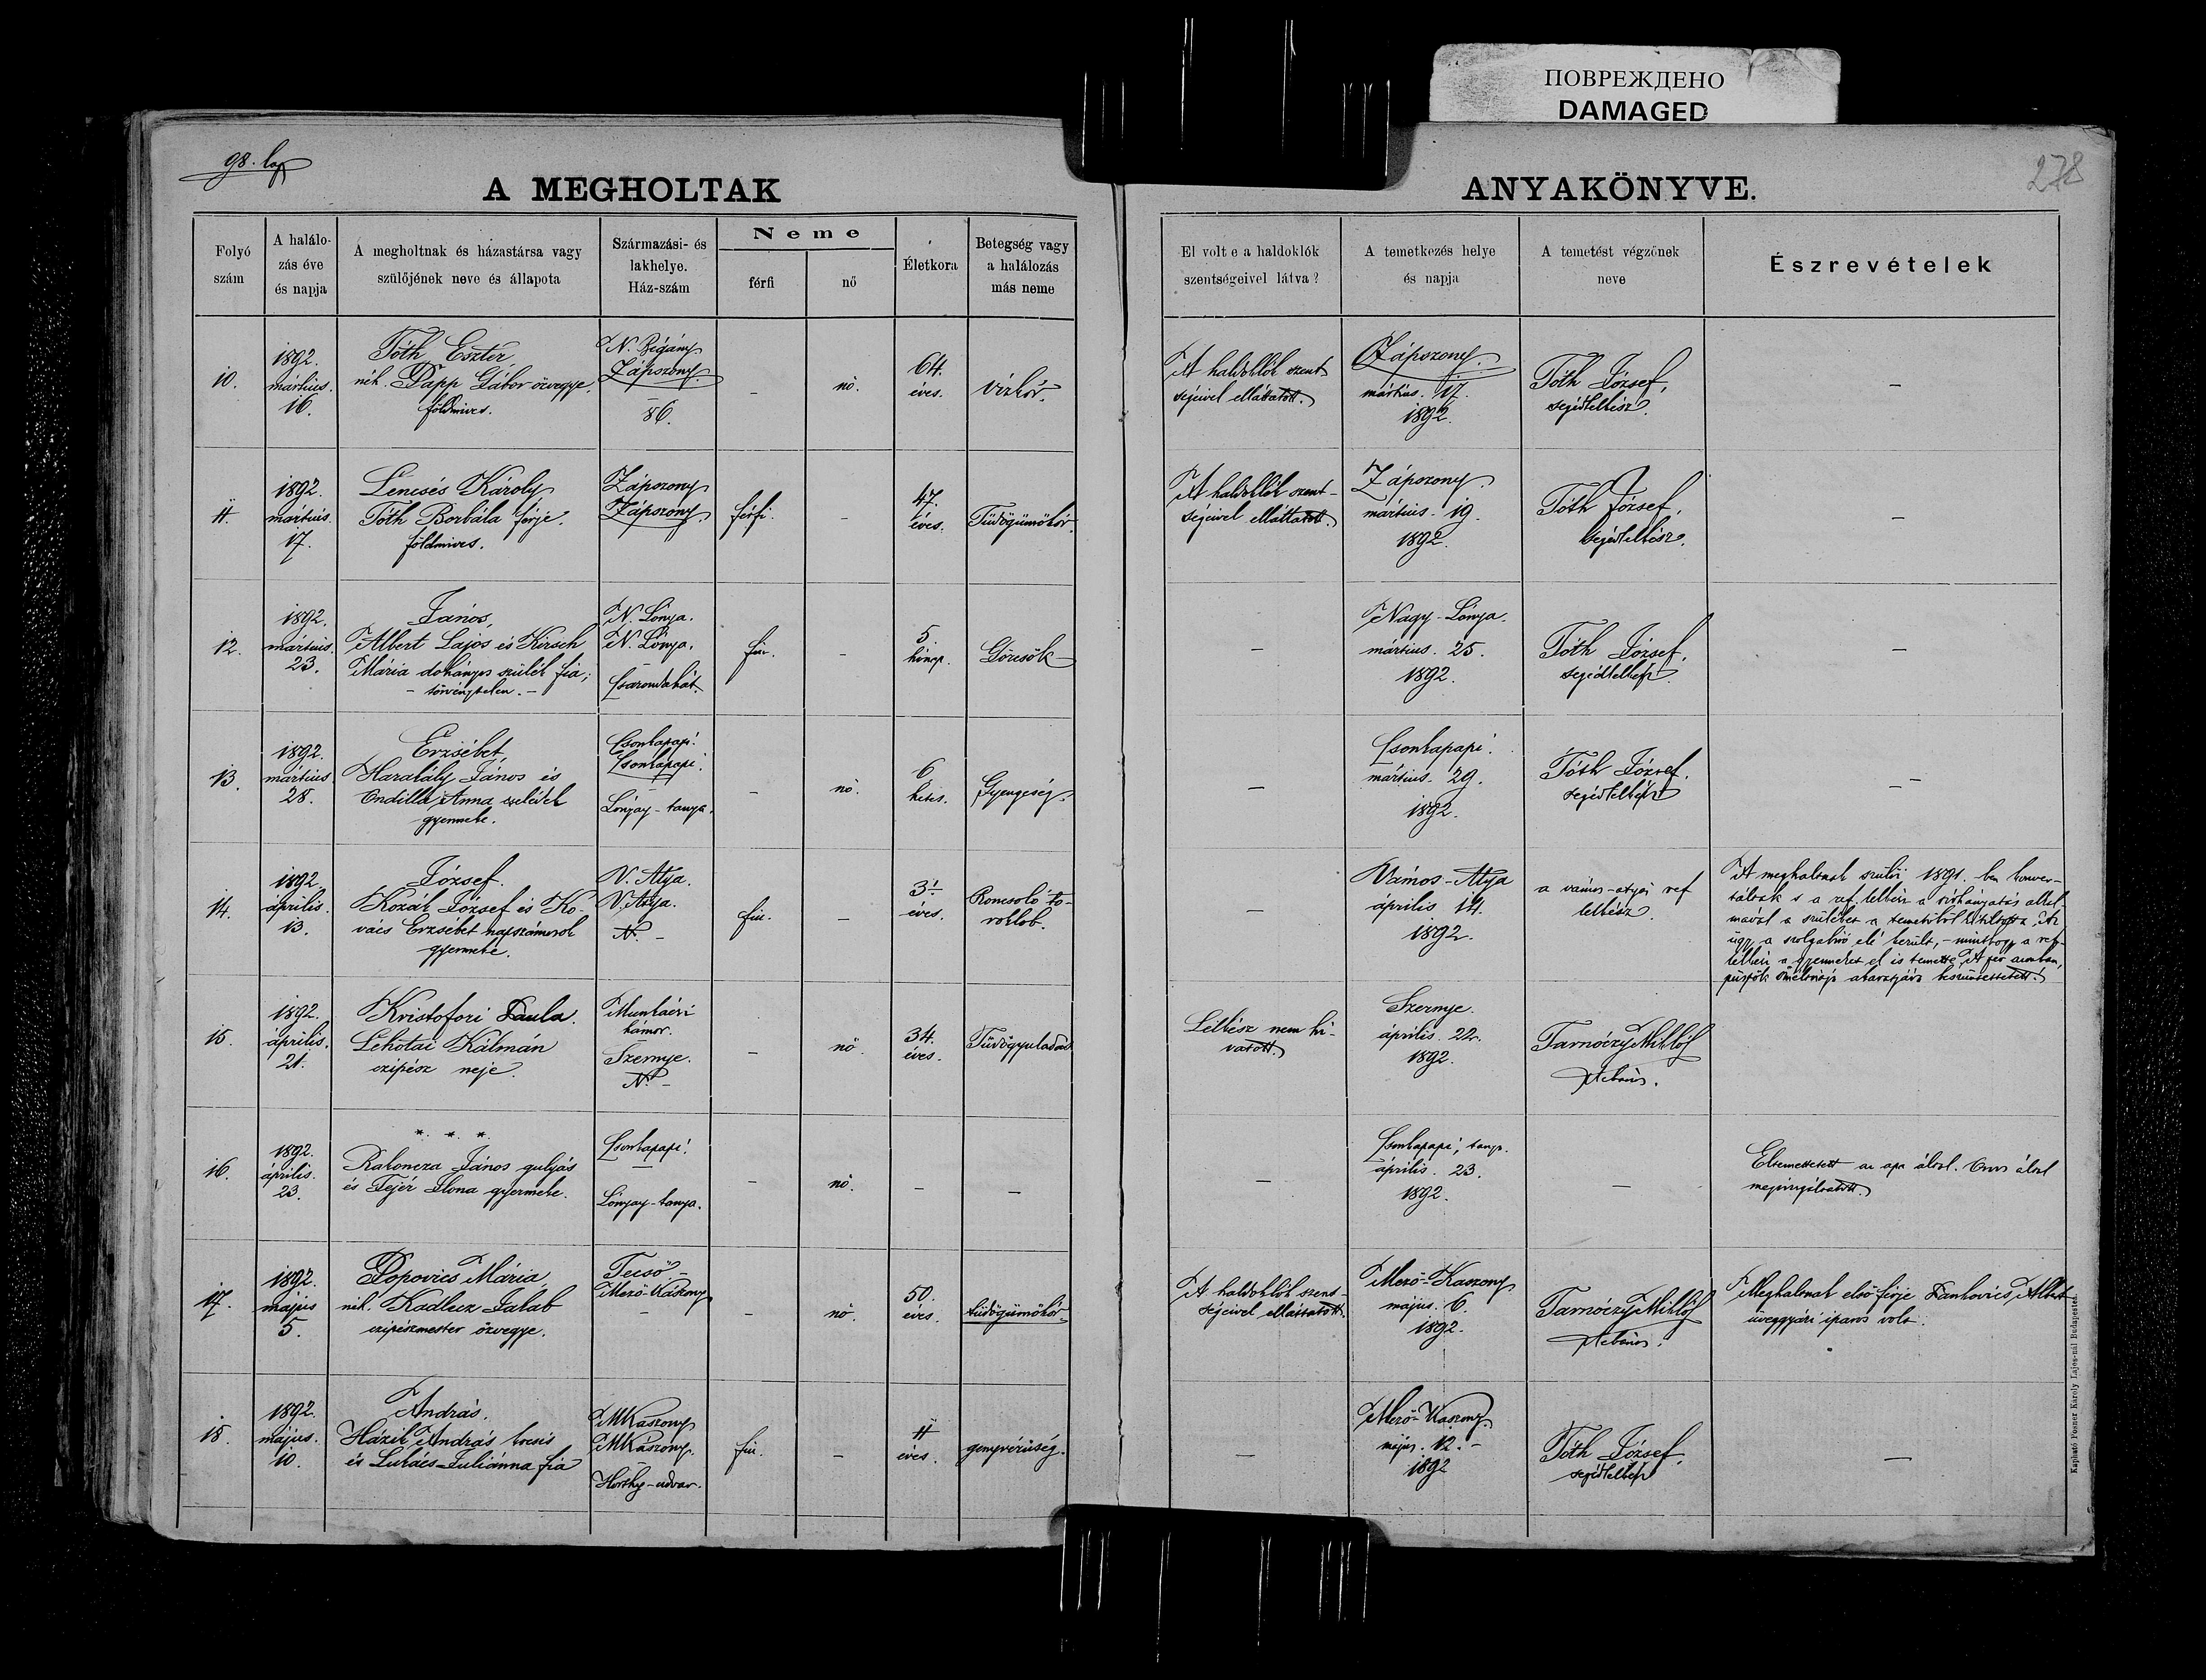 ПОВРЕЖДЕНО
DAMAGED
98. lap
278
A MEGHOLTAK
ANYAKÖNYVE.
Folyó
szám
A halálo-
zás éve
és napja
A megholtnak és házastársa vagy
szülőjének neve és állapota
Származási- és
lakhelye.
Ház-szám
Neme
férfi
nő
Életkora
Betegség vagy
a halálozás
más neme
El volt e a haldoklók
szentségeivel látva?
A temetkezés helye
és napja
A temetést végzőnek
neve
Észrevételek
10.
1892.
március.
16.
Tóth Eszter,
néh. Papp Gábor özvegye,
földmives.
N. Bégány
Zápszony
86.
–
nő.
64.
éves.
vízkór.
A haldoklók szent
ségeivel elláttatott.
Zápszony.
március. 17.
1892.
Tóth József,
segédlelkész.
–
11.
1892.
március.
17.
Lencsés Károly
Tóth Borbála férje.
földmives.
Zápszony
Zápszony.
férfi.
–
47.
éves.
Tüdőgümőkór.
A haldoklók szent-
ségeivel elláttatott.
Zápszony
március. 19.
1892.
Tóth József,
segédlelkész.
–
12.
1892.
március.
23.
János,
Albert Lajos és Kirsch
Mária dohányos szülék fia;
– törvénytelen. –
N. Lónya.
N. Lónya.
Csarondahát.
fiu.
–
5.
hónap.
Görcsök
–
Nagy-Lónya.
március. 25.
1892.
Tóth József,
segédlelkész
–
13.
1892.
március
28.
Erzsébet,
Harabály János és
Ondilla Anna cselédek
gyermeke.
Csonkapapi.
Csonkapapi.
Lónyay-tanya.
–
nő.
6
hetes.
Gyengeség.
–
Csonkapapi.
március. 29.
1892.
Tóth József.
segédlelkész
–
14.
1892.
április.
13.
József.
Kozák József és Ko-
vács Erzsébet napszámosok
gyermeke.
V. Atya.
V. Atya.
N. –
fiu.
–
3½
éves.
Roncsoló to-
roklob.
–
Vámos-Atya
április 14.
1892.
a vámos-atyai ref
lelkész.
A meghaltnak szülői 1891.-ben konver-
táltak s a ref. lelkész a
a szüléket a temetőből kitiltotta. Az
ügy a szolgabiró elé került, – minthogy a ref.
lelkész a gyermeket el is temette. A
püspök
15.
1892.
április.
21.
Kristofori Paula.
Lehotai Kálmán
czipész neje.
Munkácsi
hámor.
Szernye.
N. –
–
nő.
34.
éves.
Tüdőgyuladás
Lelkész nem hi-
vatott.
Szernye.
április. 22.
1892.
Tarnóczy Miklós
plébános.
16.
1892.
április.
23.
*. *. *.
Rakoncza János gulyás
és Fejér Ilona gyermeke.
Csonkapapi.
–
Lónyay-tanya.
–
nő.
–
–
–
Csonkapapi, tanya.
április. 23.
1892.
–
Eltemettetett az apa által. Orvos által
megvizsgáltatott.
17.
1892.
május
5.
Popovics Mária,
néh. Kadlecz Jakab
czipészmester özvegye.
Tecső –
Mező-Kászony
–
–
nő.
50.
éves.
tüdőgümőkór.
A haldoklók szent-
ségeivel elláttatott.
Mező-Kaszony
május. 6.
1892.
Tarnóczy Miklós
plébános.
Meghaltnak első férje Jankovics Albert
üveggyári iparos volt.
18.
1892.
május.
10.
András.
Házik András kocsis
és Lukács Julianna fia
MKaszony
MKaszony.
Horthy-udvar.
fiu.
–
11
éves.
genyvérüség.
–
Mező-Kaszony.
május. 12. –
1892
Tóth József,
segédlelkész
–
Kapható Posner Karoly Lajos-nál Budapesten.